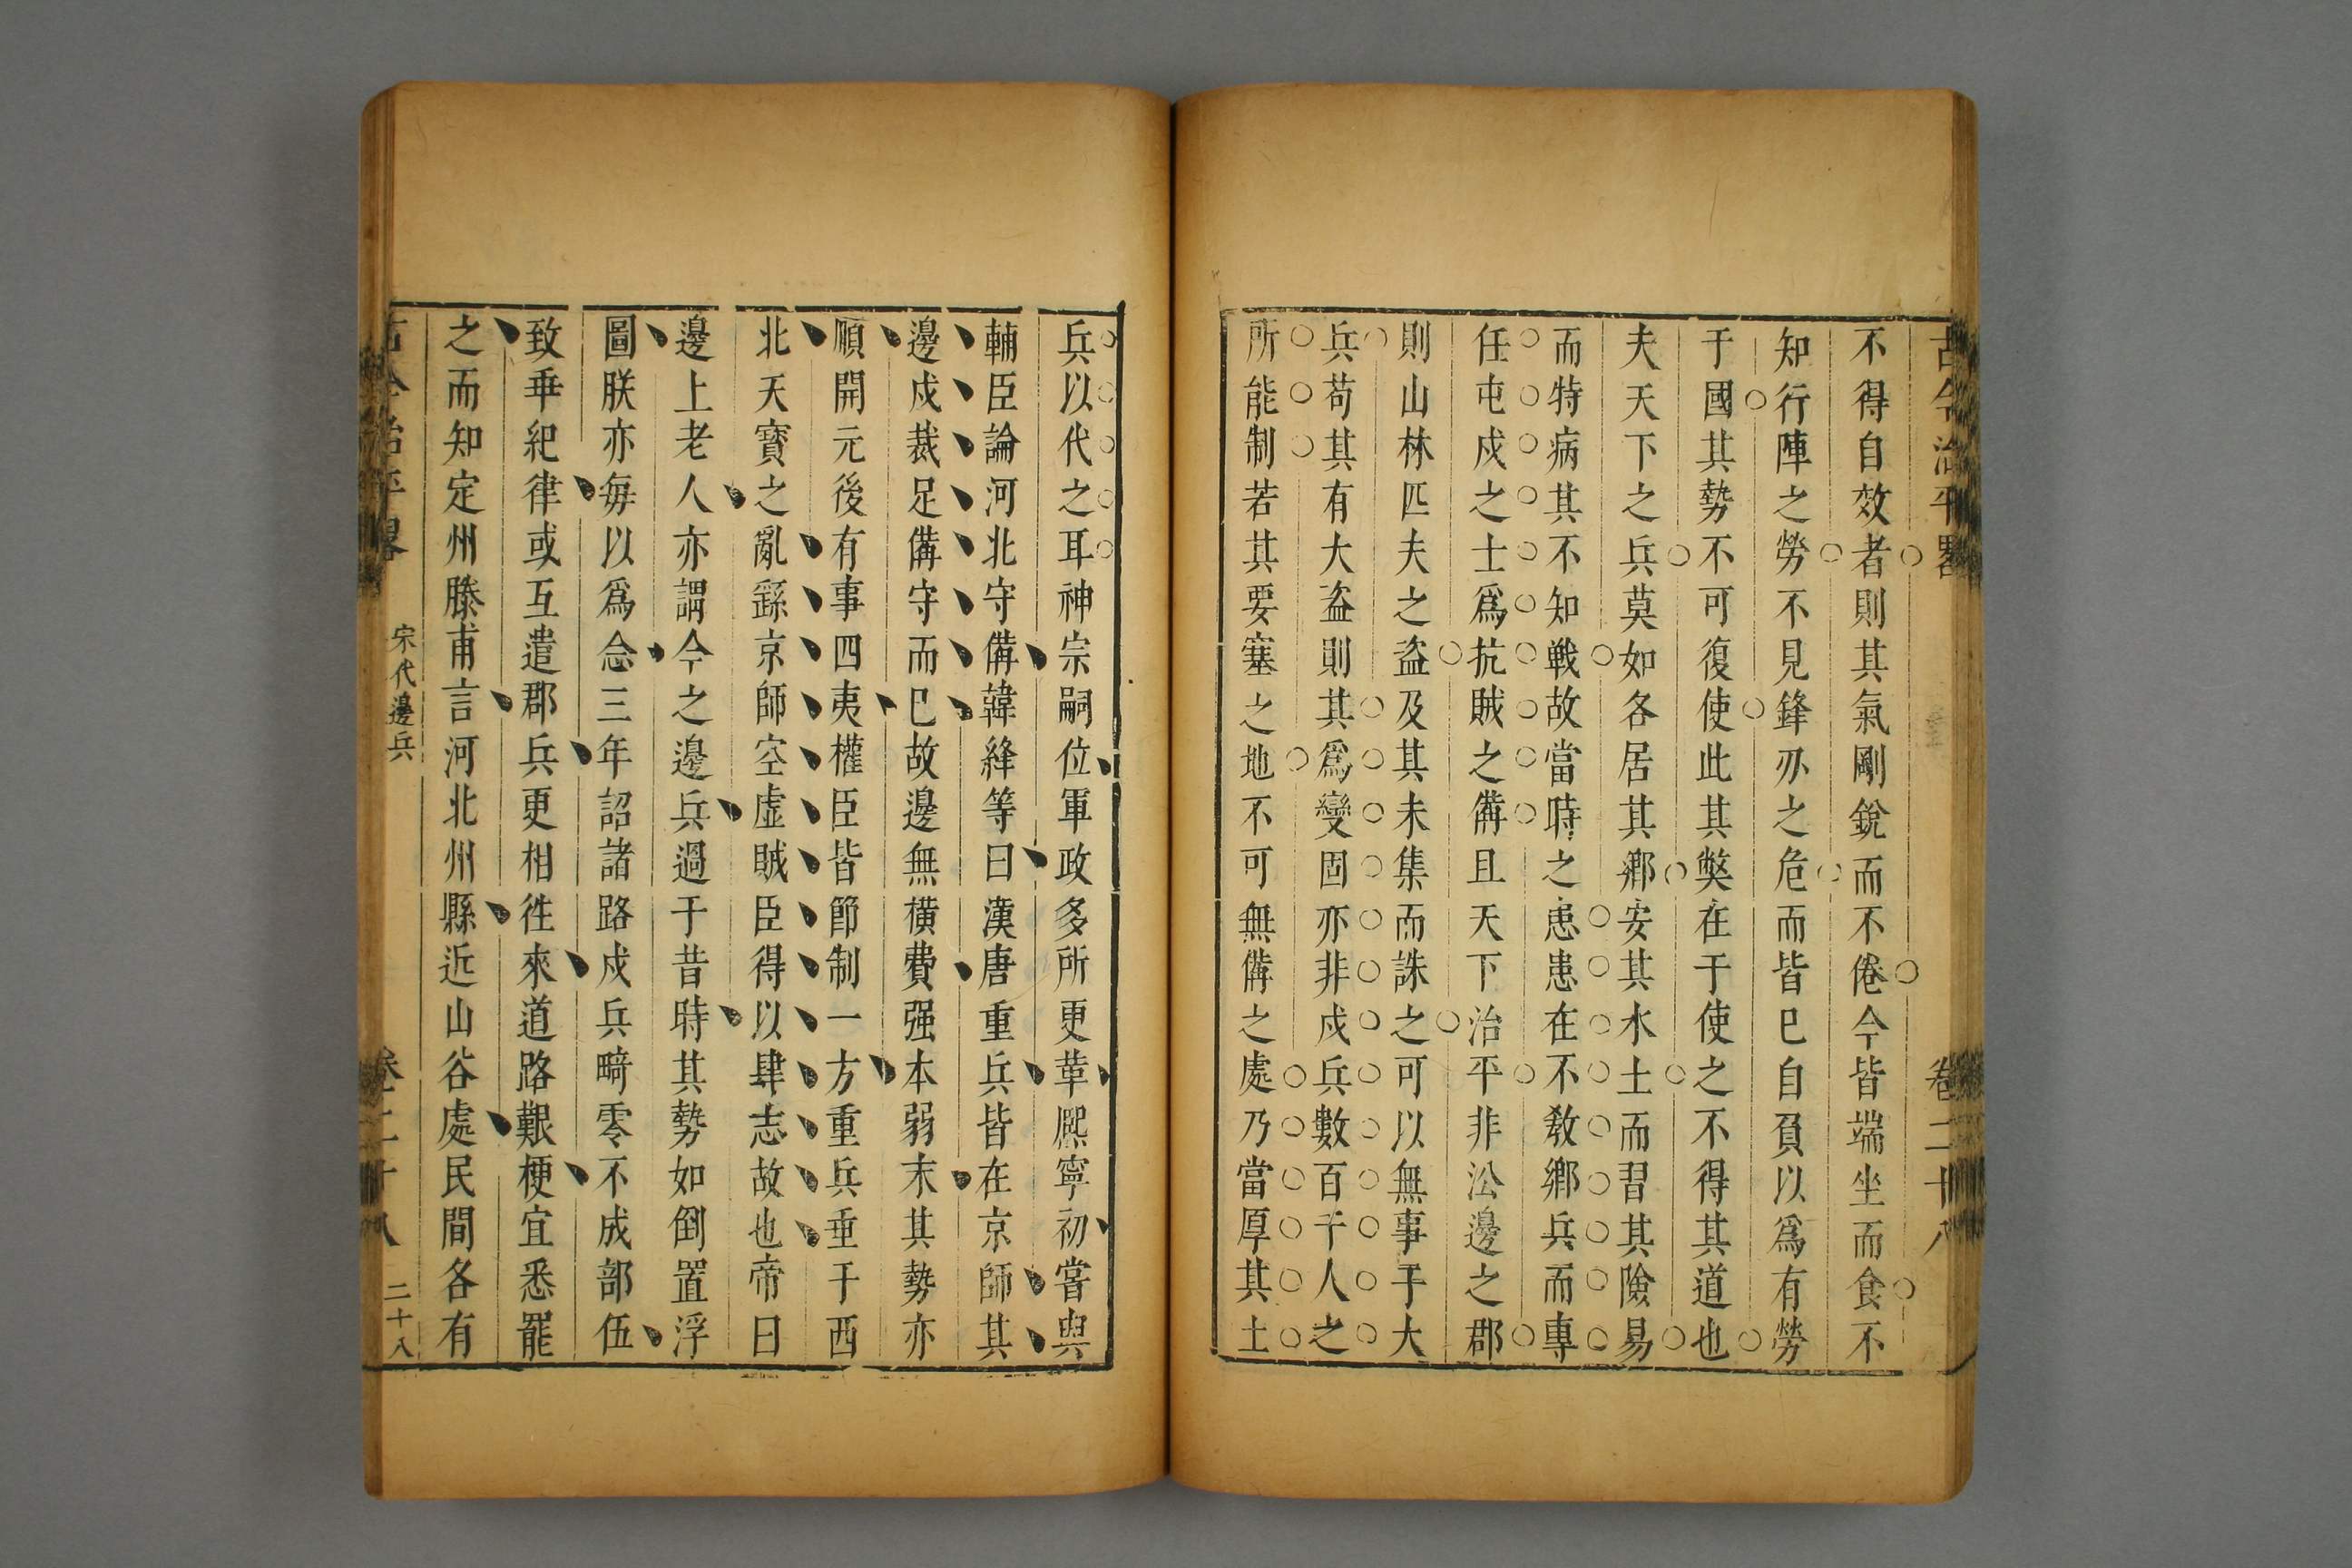 古今治平畧 卷二十八
不得自效者則其氣剛銳而不倦今皆端坐而食不
知行陣之勞不見鋒刃之危而皆巳自負以爲有勞
于國其勢不可復使此其獘在于使之不得其道也
夫天下之兵莫如各居其鄉安其水土而習其險易
而特病其不知戰故當時之患患在不敎鄉兵而專
任屯戍之士爲抗賊之備且天下治平非㳂邊之郡
則山林匹夫之盜及其未集而誅之可以無事于大
兵苟其有大盜則其爲變固亦非戍兵數百千人之
所能制若其要塞之地不可無備之處乃當厚其土
兵以代之耳神宗嗣位軍政多所更革熈寧初嘗與
輔臣論河北守備韓絳等曰漢唐重兵皆在京師其
邊戍裁足備守而巳故邊無橫費强本弱末其勢亦
順開元後有事四夷權臣皆節制一方重兵重于西
北天寳之亂繇京師空虛賊臣得以肆志故也帝曰
邊上老人亦謂今之邊兵過于昔時其勢如倒置浮
圖朕亦每以爲念三年詔諸路戍兵畸零不成部伍
致乖紀律或互遣郡兵更相徃來道路艱梗宜悉罷
之而知定州滕甫言河北州縣近山谷處民間各有
古今治平畧 宋代邊兵 卷二十八 二十八